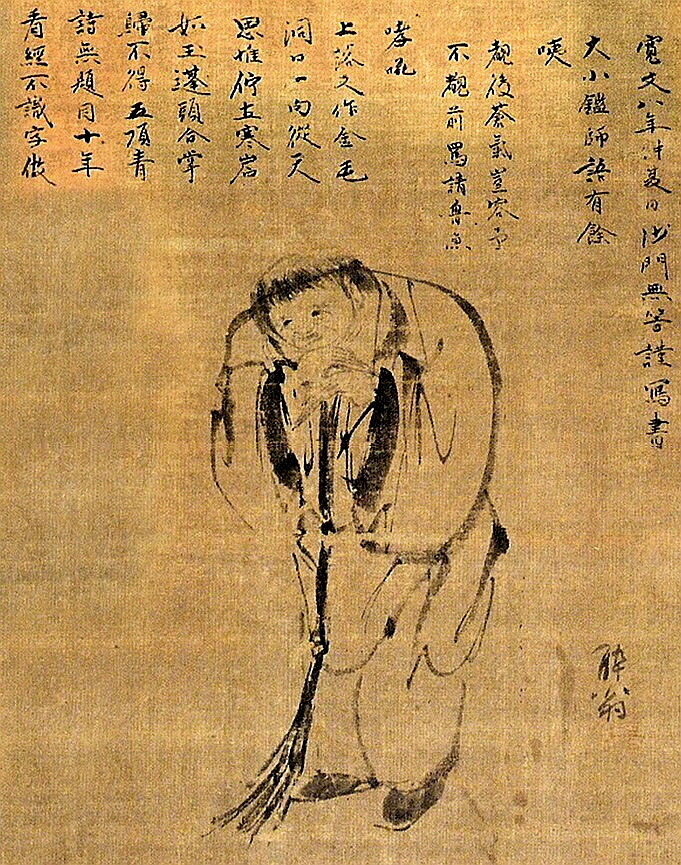 看經不識字做
詩無題目十年
歸不得五頂青
如玉蓬頭合掌
思惟佇立寒岩
洞口一向從天
上落又作金毛
哮吼
不前罵請魯魚
後氣豈容予
咦
大小鑑師語有餘
寛文八年仲夏日沙門無等謹寫書
醉翁